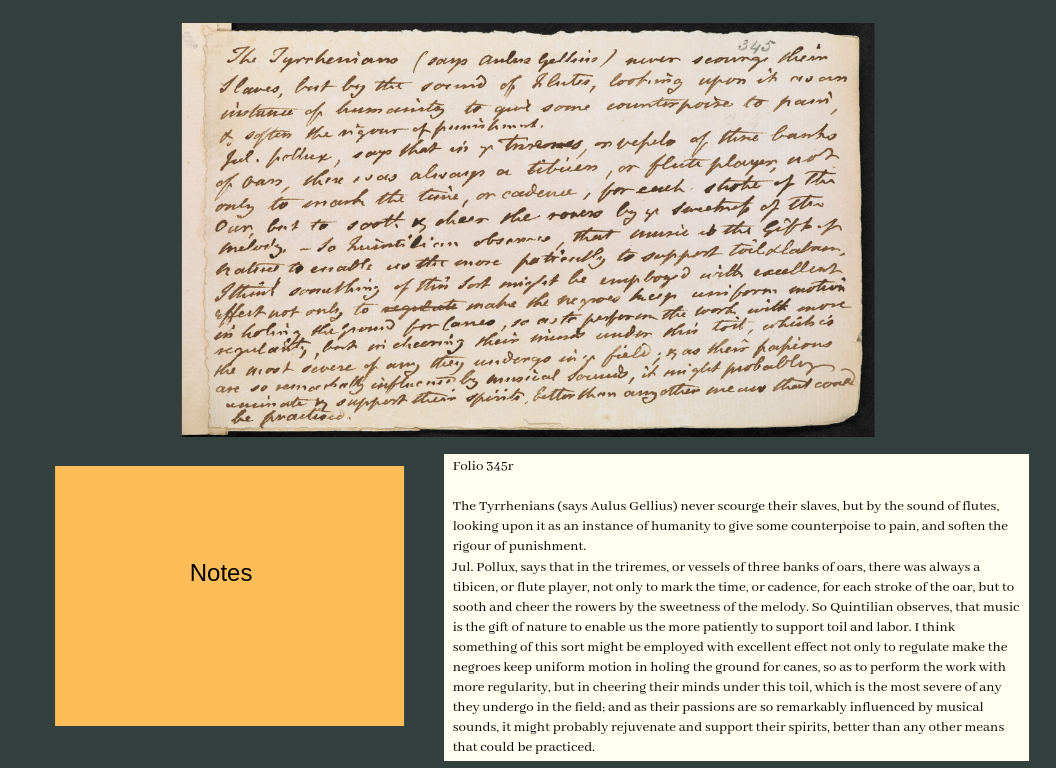 345
The Tyrrhenians (says Aulus Gellius) never scourge their
slaves, but by the sound of flutes, looking upon it as an
instance of humanity to give some counterpoise to pain,
& soften the rigour of punishment.
Jul. pollux, says that in ye triremes, or vessels of three banks
of oars, there was always a tibicen, or flute player, not
only to mark the time, or cadence, for each stroke of the
Oar, but to sooth & cheer the rowers by ye sweetness of the
melody. - So Quintilian observes, that music is the Gift of
nature to enable us the more patiently to support toil & Labour.
I think something of this sort might be employed with excellent
effect not only to regulate make the negroes keep uniform motion
in holing the ground for Canes, so as to perform the work with more
regularity, but in cheering their minds under this toil, which is
the most severe of any they undergo in ye field; & as their passions
are so remarkably influenced by musical sounds, it might probably
& support their spirits, better than any other means that could
be practised.
Notes
Folio 345r
The Tyrrhenians (says Aulus Gellius) never scourge their slaves, but by the sound of flutes,
looking upon it as an instance of humanity to give some counterpoise to pain, and soften the
rigour of punishment.
Jul. Pollux, says that in the triremes, or vessels of three banks of oars, there was always a
tibicen, or flute player, not only to mark the time, or cadence, for each stroke of the oar, but to
sooth and cheer the rowers by the sweetness of the melody. So Quintilian observes, that music
is the gift of nature to enable us the more patiently to support toil and labor. I think
something of this sort might be employed with excellent effect not only to regulate make the
negroes keep uniform motion in holing the ground for canes, so as to perform the work with
more regularity, but in cheering their minds under this toil, which is the most severe of any
they undergo in the field; and as their passions are so remarkably influenced by musical
sounds, it might probably rejuvenate and support their spirits, better than any other means
that could be practiced.